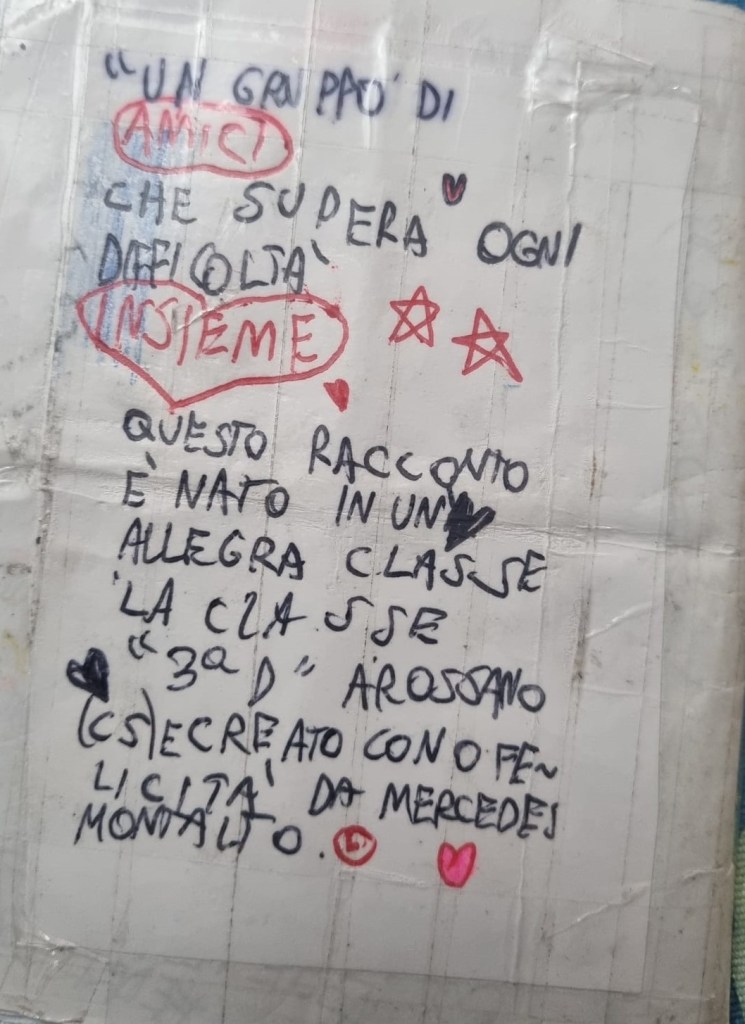 "UN GRUPPO DI
AMICI
CHE SUPERA OGNI
DIFFICOLTA'
INSIEME
QUESTO RACCONTO
È NATO IN UN
ALLEGRA CLASSE
LA CLASSE
"3ª D" A ROSSANO
(CS) E CREATO CON O FE~
LICITA' DA MERCEDES
MONTALTO.